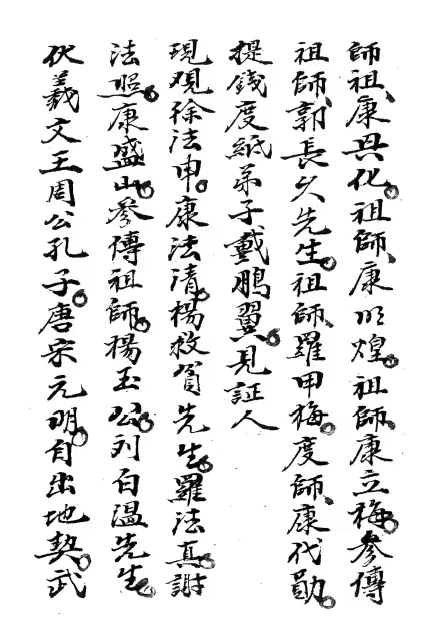 師祖、康興化。祖師、康明煌。祖師康立梅。參傳
祖師、郭長久先生。祖師、羅甲梅。度師、康代勛。
提錢度紙弟子戴鵬翼。見証人
現观徐法申。康法清。楊救貧先生。羅法真。謝
法照。康盛山。參傳祖師。楊玉公。列白溫先生。
伏羲文王周公孔子。唐宋元明。自出地契。武